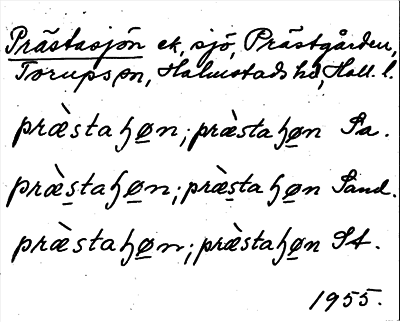 Prästasjön ek, sjö, Prästgården,
Torups sn, Halmstads hd, Hall. l.
præ̀staɧøn; præ̀staɧøn Sa.
præ̀staɧøn; præ̀staɧøn Sand.
præ̀staɧøn; præ̀staɧøn St.
1955.